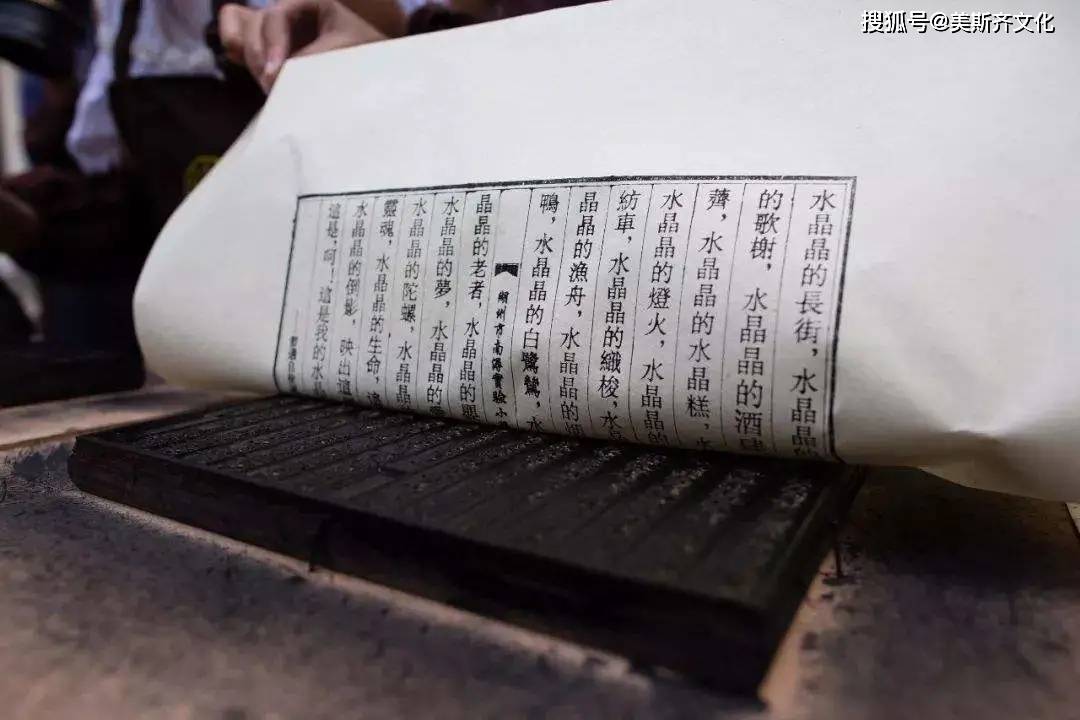 搜狐号@美斯齐文化
水晶晶的長街，水晶晶
的歌榭，水晶晶的酒
薺，水晶晶的水晶糕，
水晶晶的燈火，水晶晶的
紡車，水晶晶的織梭，水
晶晶的漁舟，水晶晶的
鴨，水晶晶的白鷺鷥，水
湖州市南潯實驗小
晶晶的老者，水晶晶的
水晶晶的夢，水晶晶的
水晶晶的陀螺，水晶晶
靈魂，水晶晶的生命，這
水晶晶的倒影，映出這
這是，啊！這是我的水晶